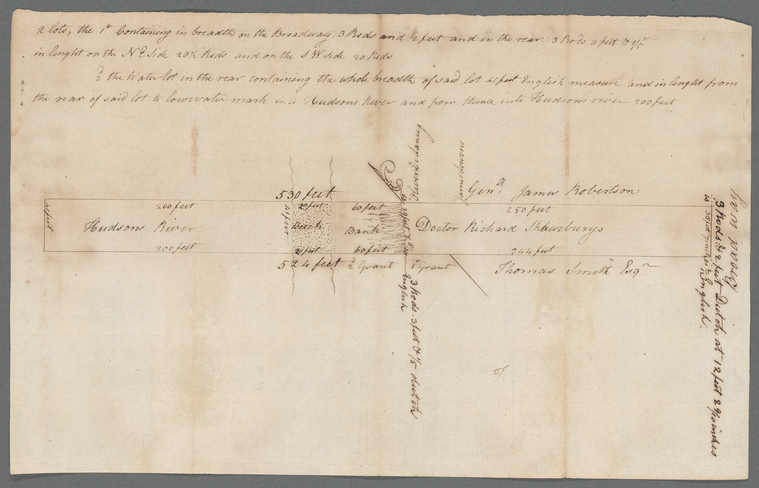 2 lots, the 1st Containing in breadth on the Broadway 3 Rods and 2 feet and in the rear 3 Rods 3 feet & 1/5
in lenght on the N.E. Side 20 Rods and on the S W side 20 Rods
2d the Water lot in the rear containing the whole breadth of said lot 41 feet English measure and in lenght from
the rear of said lot to lowwater mark in Hudsons River and from thence into Hudsons river 200 feet
Genll James Robertson
530 feet
200 feet
20 feet
60 feet
250 feet
41 feet
Hudsons River
41 feet
Beech
Bank
Doctor Richard Shuckburgs
200 feet
60 feet
244 feet
524 feet
2d Grant
1st Grant
Thomas Smith Esqr
3 Rods 3 feet & 1/5 dutch
English
Broad way
3 Rods & 2 feet Dutch at 12 feet 2 9/10 inches
English